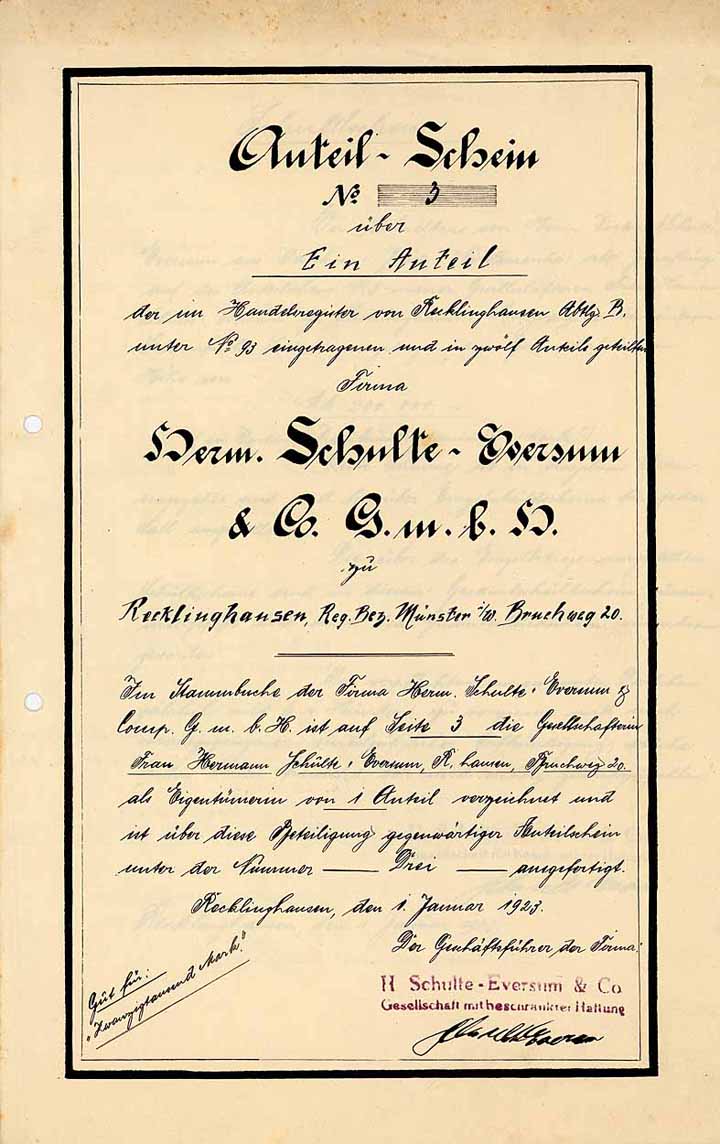 Anteil - Schein
No. 3
über
Ein Anteil
der im Handelsregister von Recklinghausen Abtlg. B.
unter No 93 eingetragenen und in zwölf Anteile geteilten
Firma
Herm. Schulte - Eversum
& Co. G. m. b. H.
zu
Recklinghausen, Reg. Bez. Münster i/W. Bruchweg 20.
Im Stammbuche der Firma Herm. Schulte-Eversum &
Comp. G. m. b. H. ist auf Seite 3 die Gesellschafterin
Frau Hermann Schülte-Eversum, R. hausen, Bruchweg 20.
als Eigentümerin von 1 Anteil verzeichnet und
ist über diese Beteiligung gegenwärtiger Anteilschein
unter der Nummer — Drei — ausgefertigt.
Recklinghausen, den 1. Januar 1923.
Der Geschäftsführer der Firma:
Gut für:
"Zwanzigtausend Mark."
H Schulte-Eversum & Co
Gesellschaft mit beschränkter Haftung